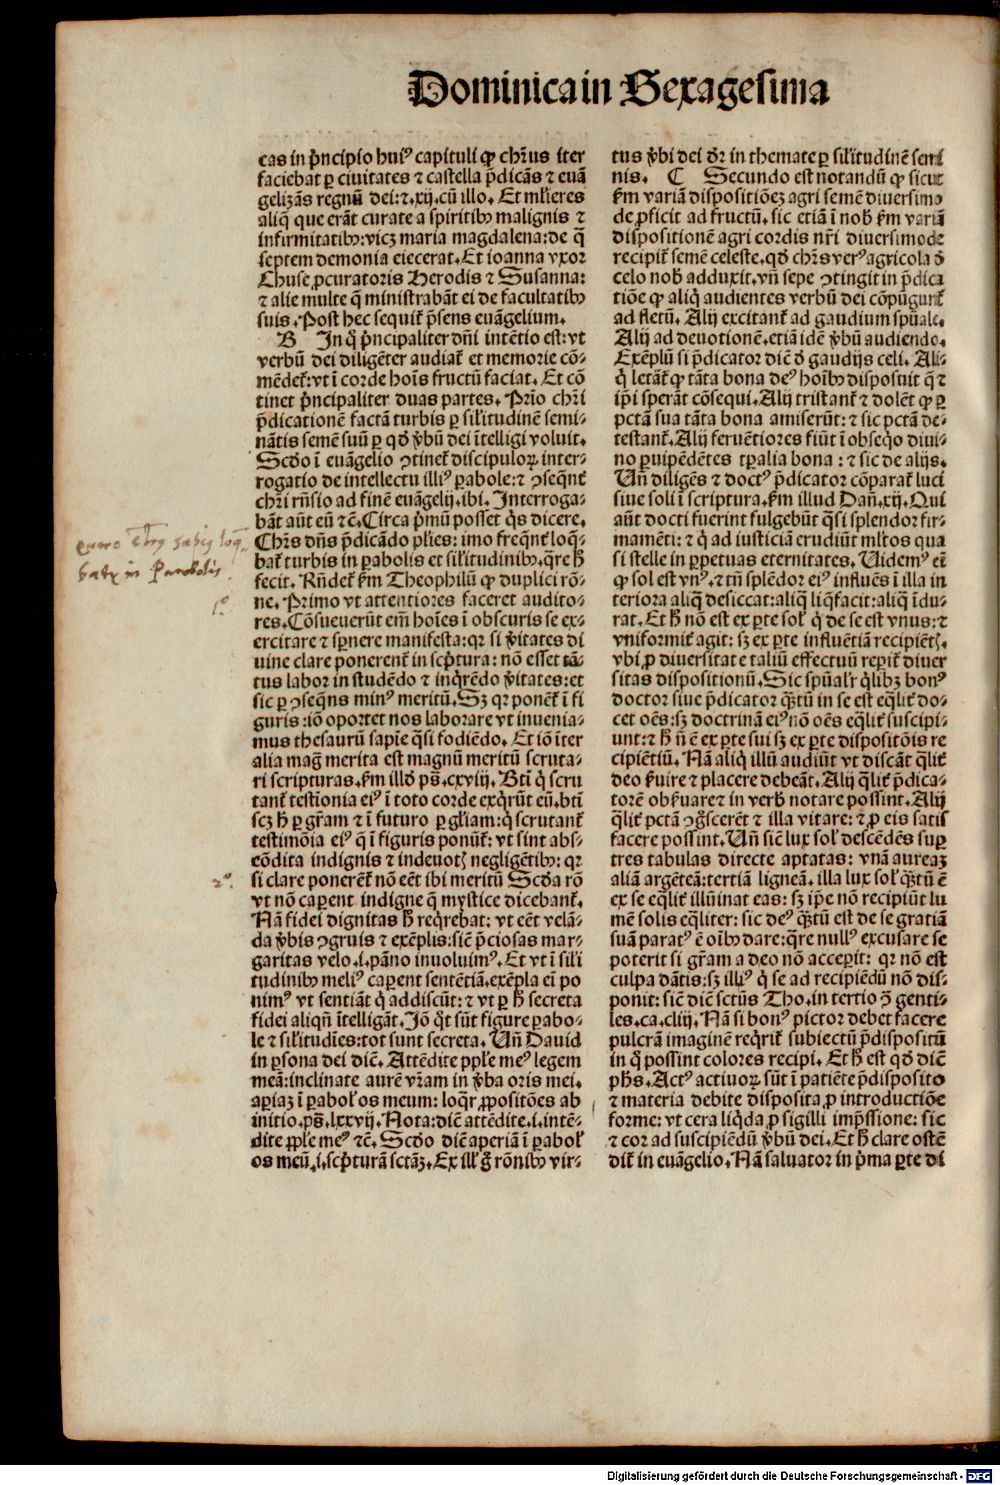 Dominica in Sexagesima
cas in p̄ncipio huiꝰ capituli ꝙ chr̄us iter
faciebat ꝑ ciuitates ⁊ castella p̄dicās ⁊ euā
gelizās regnū dei:⁊.xij.cū illo. Et ml̄ieres
aliq̄ que erāt curate a spiritibꝰ malignis ⁊
infirmitatibꝰ:vicꝫ maria magdalena:de q̄
septem demonia eiecerat. Et ioanna vxor
Chuse ꝓcuratoris Herodis ⁊ Susanna:
⁊ alie multe q̄ ministrabāt ei de facultatibꝰ
suis. Post hec sequit᷑ p̄sens euāgelium.
B In q̊ p̄ncipaliter dn̄i intētio est:vt
verbū dei diligēter audiat᷑ et memorie cō-
mēdet᷑:vt ī corde hoīs fructū faciat. Et cō
tinet p̄ncipaliter duas partes. Prīo chr̄i
p̄dicationē factā turbis ꝑ sil̄itudinē semi-
nātis semē suū ꝑ qd̄ v̄bū dei ītelligi voluit.
Scd̄o ī euāgelio ꝯtinet᷑ discipuloꝝ inter-
rogatio de intellectu illiꝰ ꝑabole:⁊ ꝯseqn̄t᷑
chr̄i rn̄sio ad finē euāgelij.ibi. Interroga-
bāt aūt eū ⁊c̄. Circa p̄mū posset q̊s dicere.
Chr̄s dn̄s p̄dicādo pl̄ies: imo freqn̄t᷑ loq̄-
bat᷑ turbis in ꝑabolis et sil̄itudinibꝰ.q̄re h̄
fecit. Rn̄det᷑ ẜm Theophilū ꝙ duplici rō-
ne. Primo vt attentiores faceret audito-
res. Cōsueuerūt em̄ hoīes ī obscuris se ex-
ercitare ⁊ sꝑnere manifesta:qꝛ si v̄itates di
uine clare ponerent᷑ in sc̄ptura: nō esset tā-
tus labor in studēdo ⁊ inq̄rēdo v̄itates:et
sic ꝑ ꝯseqn̄s minꝰ meritū. Sꝫ qꝛ ponēt᷑ ī fi
guris:iō oportet nos laborare vt inuenia-
mus thesaurū sapīe q̄si fodiēdo. Et iō īter
alia mag᷑ merita est magnū meritū scruta-
ri scripturas.ẜm illd̄ ps̄.cxviij. Bt̄i q̊ scru
tant᷑ testīonia eiꝰ ī toto corde exq̊rūt eū.bt̄i
scꝫ h̄ ꝑ gr̄am ⁊ ī futuro ꝑ gl̄iam:q̊ scrutant᷑
testimōia eiꝰ q̄ ī figuris ponūt᷑: vt sint abs-
cōdita indignis ⁊ indeuotꝭ negligētibꝰ: qꝛ
si clare ponerēt᷑ nō eēt ibi meritū Scd̄a rō
vt nō caꝑent indigne q̄ mystice dicebant᷑.
Nā fidei dignitas h̄ req̊rebat: vt eēt velā-
da v̄bis ꝯgruis ⁊ exēplis:sic̄ p̄ciosas mar-
garitas velo.i.pāno inuoluimꝰ. Et vt ī sil̄i
tudinibꝰ meliꝰ caꝑent sentētiā.exēpla ei̅ po
nimꝰ vt sentiāt q̊ addiscūt: ⁊ vt ꝑ h̄ secreta
fidei aliqn̄ ītelligāt. Jō q̊t sūt figure ꝑabo-
le ⁊ sil̄itudīes:tot sunt secreta. Vn̄ Dauid
in ꝑsona dei dic̄. Attēdite pple meꝰ legem
meā:inclinate aurē vr̄am in v̄ba oris mei.
aꝑiaꝫ ī ꝑabol᷑ os meum: loqr̄ ꝓpositōes ab
initio.ps̄.lxxvij. Nota: dic̄ attēdite.i.intē-
dite pple meꝰ ⁊c̄. Scd̄o dic̄ aperiā ī ꝑabol᷑
os meū.i.sc̄pturā sctāꝫ. Ex ill᷑ g̊ rōnibꝰ vir-
tus v̄bi dei dr̄ in themate ꝑ sil̄itudinē semi
nis. C Secundo est notandū ꝙ sicut
ẜm variā dispositiōeꝫ agri semē diuersimo
de ꝓficit ad fructū. sic etiā ī nob̄ ẜm variā
dispositionē agri cordis nr̄i diuersimode
recipit᷑ semē celeste. qd̄ chr̄s verꝰ agricola d̄
celo nob̄ adduxit. vn̄ sepe ꝯtingit in p̄dica
tiōe ꝙ aliq̊ audientes verbū dei cōpūgunt᷑
ad fletū. Alij excitant᷑ ad gaudium sp̄uale.
Alij ad deuotionē.etiā idē v̄bū audiendo.
Exēplū si p̄dicator dic̄ d̄ gaudijs celi. Ali-
q̊ letāt᷑ ꝙ tāta bona deꝰ hoībꝰ disposuit q̄ ⁊
ip̄i sperāt cōsequi. Alij tristant᷑ ⁊ dolēt ꝙ ꝑ
pctā sua tāta bona amiserūt: ⁊ sic pctā de-
testant᷑. Alij feruētiores fiūt ī obseq̊o diui-
no ꝑuipēdētes tꝑalia bona: ⁊ sic de alijs.
Vn̄ diligēs ⁊ doctꝰ p̄dicator cōparat᷑ luci
siue soli ī scriptura.ẜm illud Dan̄.xij. Qui
aūt docti fuerint fulgebūt q̄si splendor fir-
mamēti: ⁊ q̊ ad iusticiā erudiūt ml̄tos qua
si stelle in ꝑpetuas eternitates. Videmꝰ ei̅
ꝙ sol est vnꝰ.⁊ tn̄ splēdor eiꝰ influēs ī illa in
teriora aliq̄ desiccat:aliq̄ liq̄facit:aliq̄ īdu-
rat. Et h̄ nō est ex ꝑte sol᷑ q̊ de se est vnus:⁊
vniformit᷑ agit: sꝫ ex ꝑte influētiā recipiētꝭ.
vbi ꝓ diuersitate taliū effectuū reꝑit᷑ diuer
sitas dispositionū. Sic sp̄ual᷑r q̊libꝫ bonꝰ
doctor siue p̄dicator q̄ꝫtū in se est eq̄lit᷑ do-
cet oēs:sꝫ doctrinā eiꝰ nō oēs eq̄lit᷑ suscipi-
unt:⁊ h̄ n̄ ē ex ꝑte sui sꝫ ex ꝑte dispositōis re
cipiētiū. Nā aliq̊ illū audiūt vt discāt q̄lit᷑
deo ẜuire ⁊ placere debeāt. Alij q̄lit᷑ p̄dica-
torē obẜuare ⁊ in verb̄ notare possint. Alij
q̄lit᷑ pctā ꝯg̊scerēt ⁊ illa vitare: ⁊ ꝓ eis satis
facere possint. Vn̄ sic̄ lux sol᷑ descēdēs suꝑ
tres tabulas directe aptatas: vnā aureaꝫ
aliā argēteā:tertiā ligneā. illa lux sol᷑ q̄ꝫtū ē
ex se eq̄lit᷑ illūinat eas: sꝫ ip̄e nō recipiūt lu
mē solis eq̄liter: sic deꝰ q̄ꝫtū est de se gratiā
suā paratꝰ ē oībꝰ dare:q̄re nullꝰ excusare se
poterit si gr̄am a deo nō acceꝑit: qꝛ nō est
culpa dātis:sꝫ illiꝰ q̊ se ad recipiēdū nō dis-
ponit: sic̄ dic̄ sctūs Tho.in tertio ꝯ̄ genti-
les.ca.cliij. Nā si bonꝰ pictor debet facere
pulcrā imaginē req̊rit᷑ subiectū p̄dispositū
in q̊ possint colores recipi. Et h̄ est qd̄ dic̄
ph̄s. Actꝰ actiuoꝝ sūt ī patiēte p̄disposito
⁊ materia debite disposita ꝓ introductiōe
forme: vt cera liq̊da ꝓ sigilli imp̄ssione: sic
⁊ cor ad suscipiēdū v̄bū dei. Et h̄ clare ostē
dit᷑ in euāgelio. Nā saluator in p̄ma ꝑte di
1º.
2º.
Digitalisierung gefördert durch die Deutsche Forschungsgemeinschaft - DFG